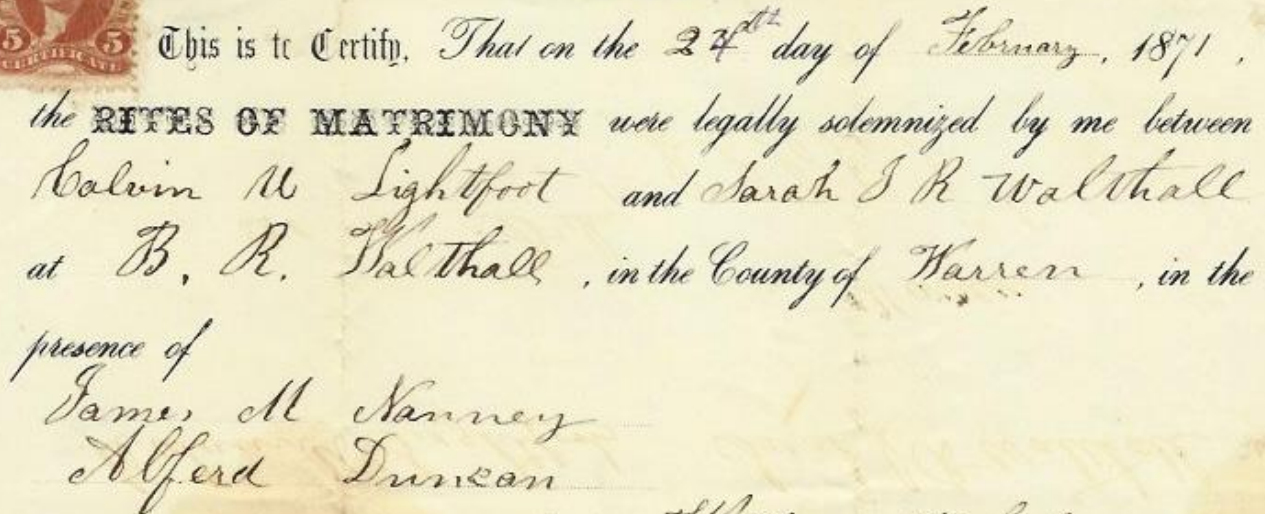 5 5
CERTIFICATE
This is to Certify, That on the 24th day of February, 1871,
the RITES OF MATRIMONY were legally solemnized by me between
Calvin U Lightfoot and Sarah J R Walthall
at B. R. Walthall, in the County of Warren, in the
presence of
James M Nanney
Alferd Duncan